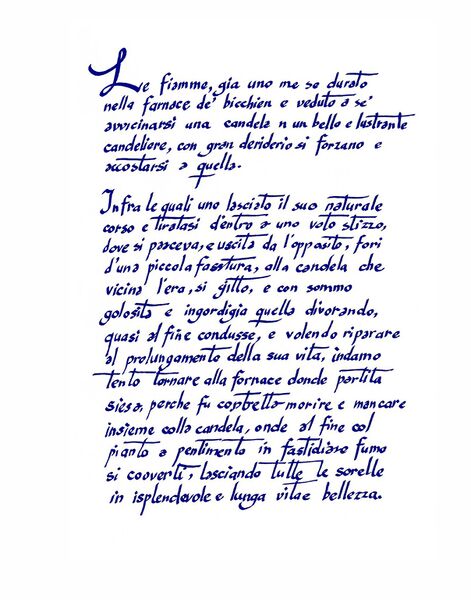 Le fiamme, gia uno me se durato
nella farnace de' bicchien e veduto a se'
avvicinarsi una candela n un bello e lustrante
candeliere, con gran deriderio si forzano e
accostarsi a quella.
Infra le quali uno lasciato il suo naturale
corso e tiratasi d'entro a uno voto stizzo,
dove si pasceva, e uscita da l'opposito, fori
d'una piccola fassitura, alla candela che
vicina l'era, si gitto, e con sommo
golosita e ingordigia quella divorando,
quasi al fine condusse, e volendo riparare
al prolungamento della sua vita, indamo
tento tornare alla fornace donde partita
siesa, perche fu costretta morire e mancare
insieme colla candela, onde al fine col
pianto a pentimento in fastidiaro fumo
si couverti, lasciando tutte le sorelle
in isplendovole e lunga vita e bellezza.